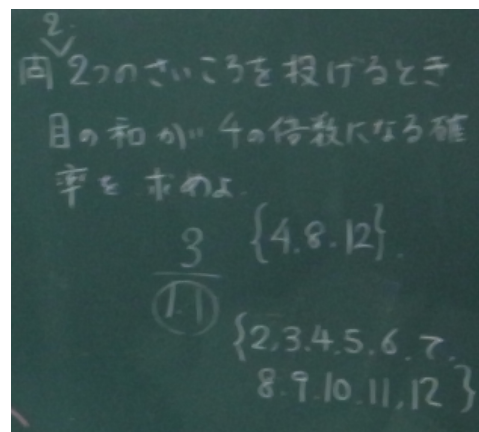 2
問 2つのさいころを投げるとき
目の和が 4の倍数になる確
率を求めよ.
3 {4.8.12}.
11
{2.3.4.5.6.7.
8.9.10.11.12}